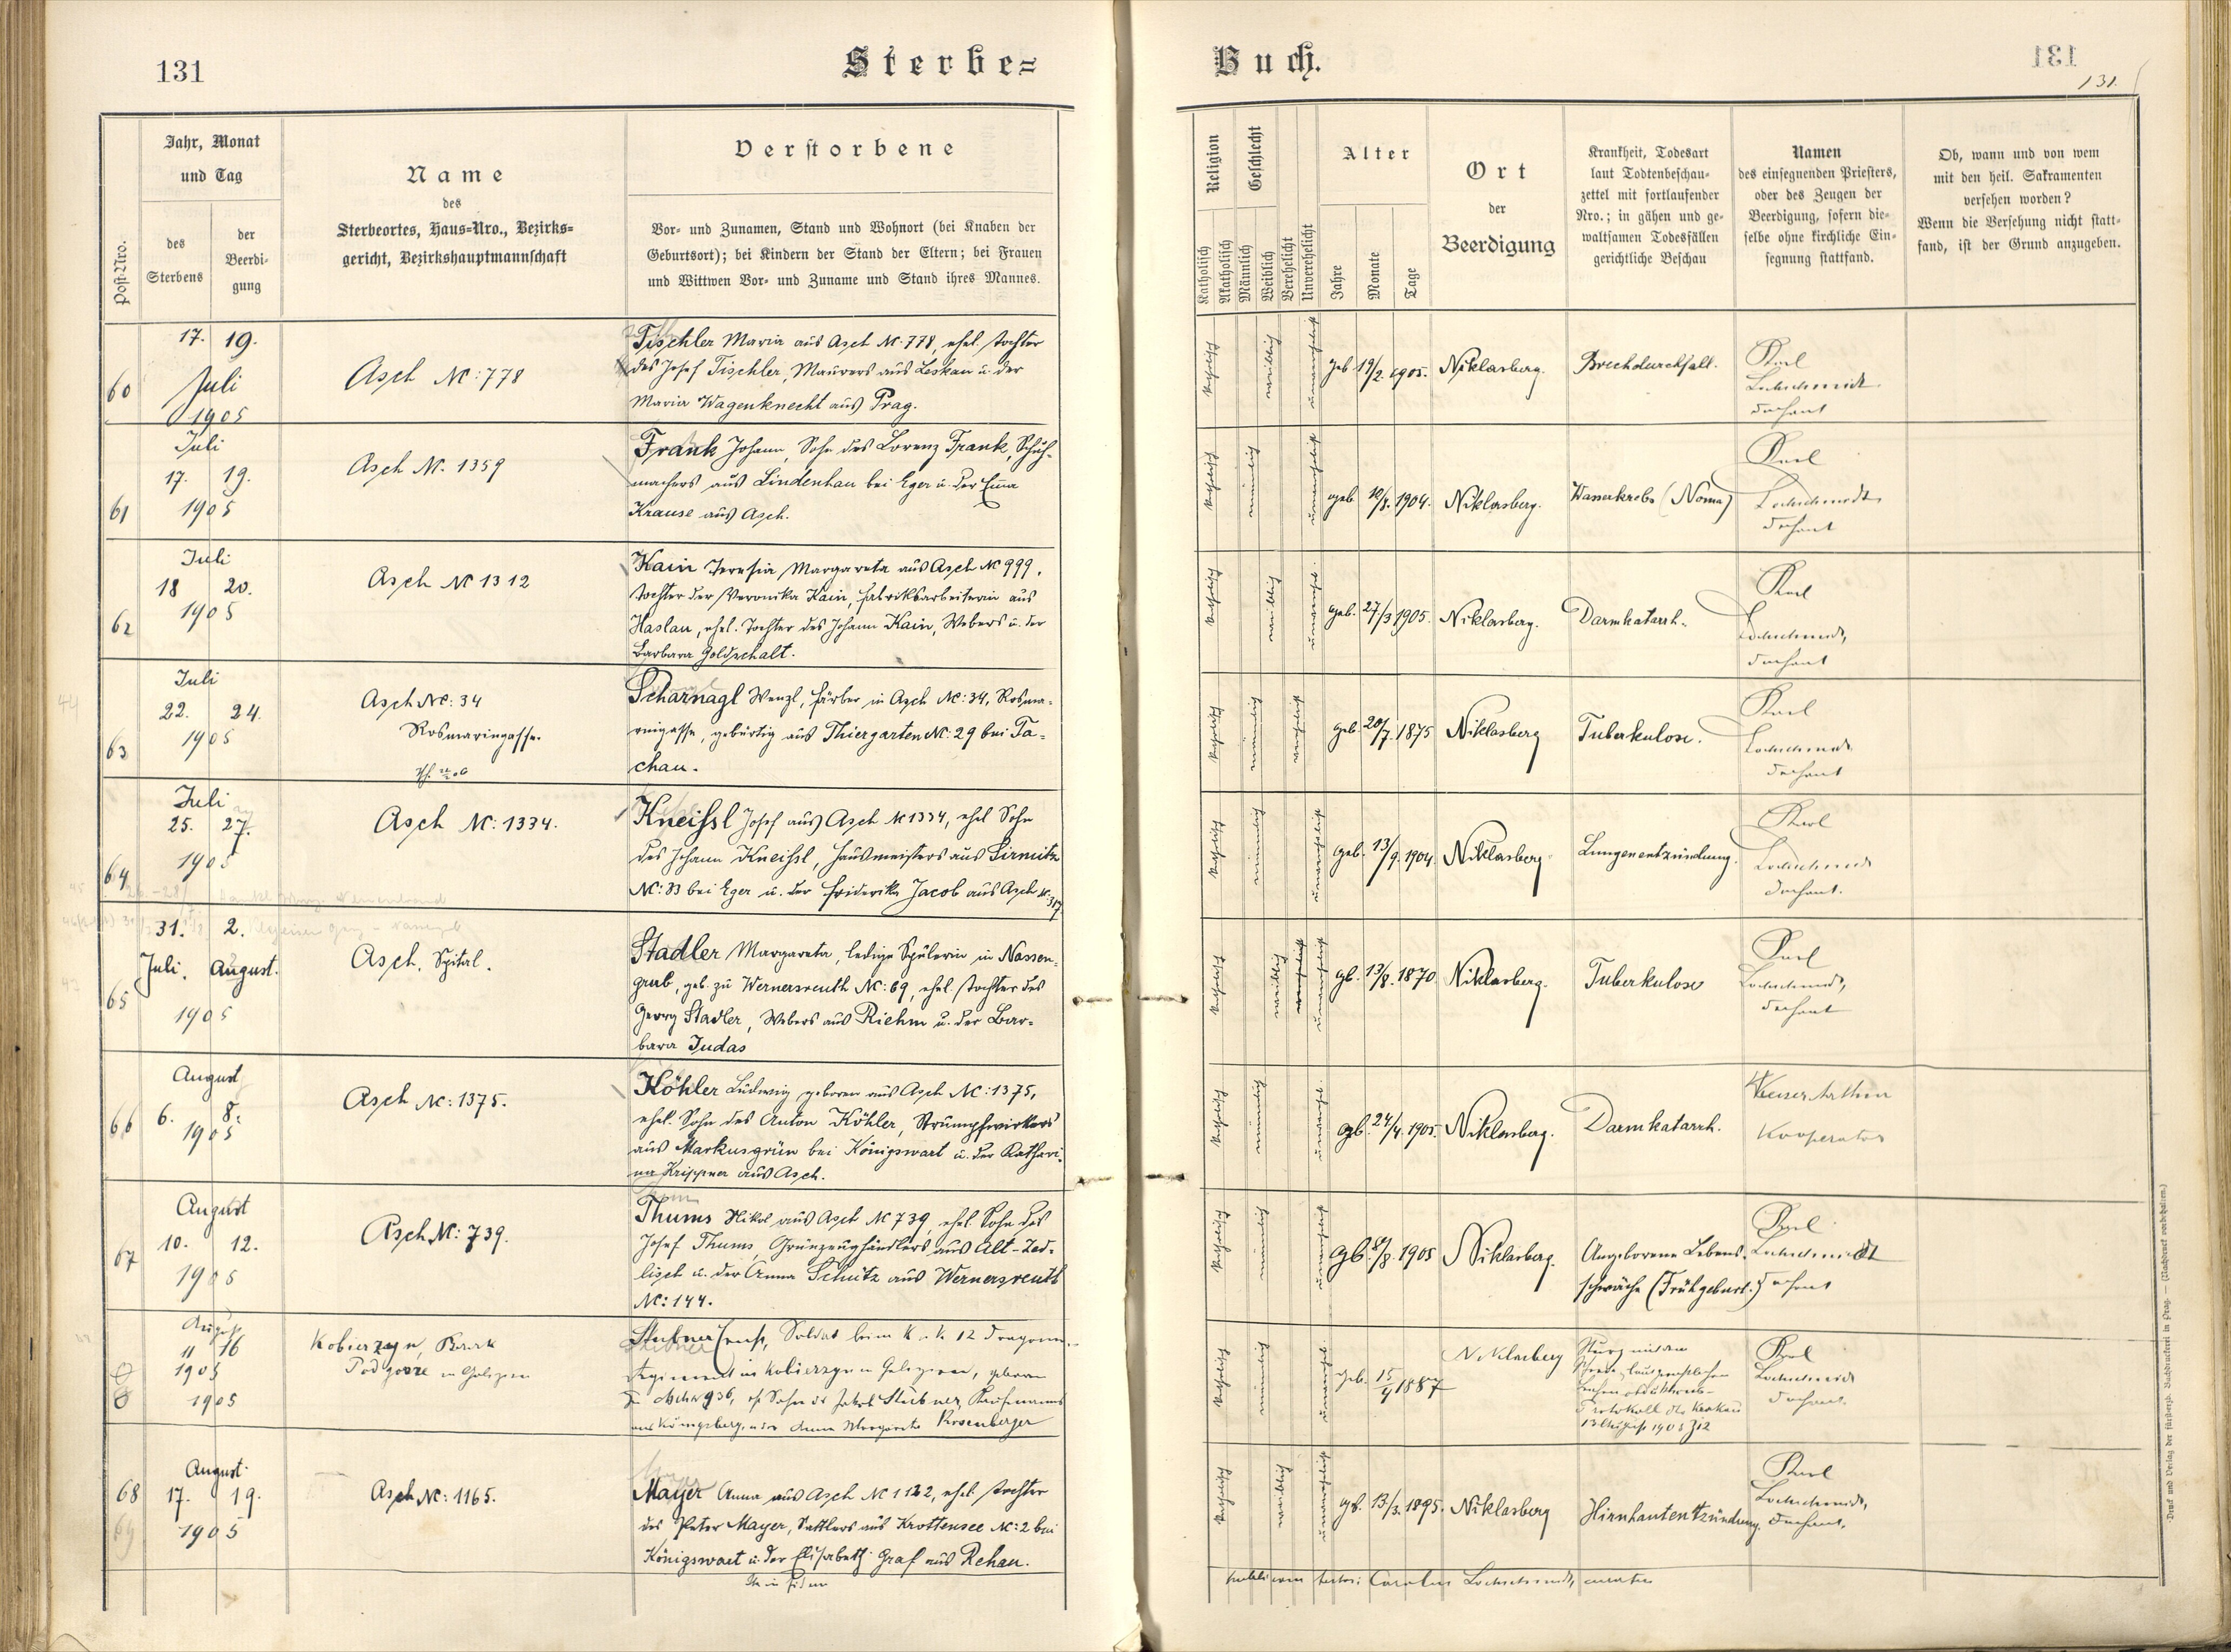 131
Sterbe=
Jahr, Monat
und Tag
Name
des
Sterbeortes, Haus=Nro., Bezirks=
gericht, Bezirkshauptmannschaft
Verstorbene
Post=Nro.
des
Sterbens
der
Beerdi=
gung
Vor= und Zunamen, Stand und Wohnort (bei Knaben der
Geburtsort); bei Kindern der Stand der Eltern; bei Frauen
und Wittwen Vor= und Zuname und Stand ihres Mannes.
60
17. 19.
Juli
1905
Asch N: 778
Tischler Maria aus Asch N: 778, ehel. Tochter
des Josef Tischler, Maurers aus Leskau u. der
Maria Wagenknecht aus Prag.
61
Juli
17. 19.
1905
Asch N. 1359
Frank Johann, Sohn des Lorenz Frank, Schuh-
machers aus Lindenhau bei Eger u. der Emma
Krause aus Asch.
62
Juli
18 20.
1905
Asch N 1312
Kain Teresia Margareta aus Asch N 999,
Tochter der Veronika Kain, Fabriksarbeiterin aus
Haslau, ehel. Tochter des Johann Kain, Webers u. der
Barbara Goldschalt.
63
Juli
22. 24.
1905
Asch N: 34
Rosmaringasse.
Scharnagl Wenzl, Färber in Asch N: 34, Rosma-
ringasse, gebürtig aus Thiergarten N: 29 bei Ta-
chau.
64
Juli
25. 27.
1905
Asch N: 1334.
Kneissl Josef aus Asch N 1334, ehel Sohn
des Johann Kneissl, Hausmeisters aus Sirmitz
N: 33 bei Eger u. der Friderika Jacob aus Asch N: 317
65
31. 2.
Juli. August.
1905
Asch, Spital.
Stadler Margareta, ledige Spülerin in Nassen-
grub, geb. zu Wernersreuth N: 69, ehel. Tochter des
Georg Stadler, Webers aus Riehm u. der Bar-
bara Judas
66
August
6. 8.
1905
Asch N: 1375.
Köhler Ludwig geboren aus Asch N: 1375,
ehel. Sohn des Anton Köhler, Strumpfwirkers
aus Markusgrün bei Königswart u. der Kathari-
na Krippner aus Asch.
67
August
10. 12.
1905
Asch N: 739.
Thums Nikol aus Asch N 739, ehel. Sohn des
Josef Thums, Grünzeughändlers aus Alt-Zed-
lisch u. der Anna Schütz aus Wernersreuth
N: 144.
August
11 16
1905
1905
Kobierzyn, Bezirk
Podgorze in Galizien
Stübner Ernst, Soldat beim K u K 12 Dragoner-
Regiment in Kobierzyn in Galizien, geboren
in Asch N 936, eh Sohn des Jakob Stübner, Kaufmanns
aus Königsberg, u der Anna Margareta Rosenberger
68
69
August
17. 19.
1905
Asch N: 1165.
Mayer Anna aus Asch N 1122, ehel. Tochter
des Peter Mayer, Sattlers aus Krottensee N: 2 bei
Königswart u. der Elisabeth Graf aus Rehau.
Buch.
131
131.
Religion
Geschlecht
Katholisch
Akatholisch
Männlich
Weiblich
Verehelicht
Unverehelicht
Alter
Jahre
Monate
Tage
Ort
der
Beerdigung
Krankheit, Todesart
laut Todtenbeschau=
zettel mit fortlaufender
Nro.; in gähen und ge=
waltsamen Todesfällen
gerichtliche Beschau
Namen
des einsegnenden Priesters,
oder des Zeugen der
Beerdigung, sofern die=
selbe ohne kirchliche Ein=
segnung stattfand.
Ob, wann und von wem
mit den heil. Sakramenten
versehen worden?
Wenn die Versehung nicht statt=
fand, ist der Grund anzugeben.
katholisch weiblich unverehelicht geb 19/2. 1905. Niklasberg. Brechdurchfall. Karl
Lochschmidt
Dechant
katholisch männlich unverehelicht geb. 10/8. 1904. Niklasberg. Wasserkrebs (Noma) Karl
Lochschmidt
Dechant
katholisch weiblich unverehel. geb. 27/3 1905. Niklasberg. Darmkatarrh. Karl
Lochschmidt,
Dechant
katholisch männlich verehelicht geb. 20/7. 1875 Niklasberg Tuberkulose. Karl
Lochschmidt
Dechant
katholisch männlich unverehelicht geb. 13/9. 1904. Niklasberg. Lungenentzündung. Karl
Lochschmidt
Dechant.
katholisch weiblich verehelicht unverehelicht gb. 13/8. 1870 Niklasberg. Tuberkulose Karl
Lochschmidt,
Dechant
katholisch männlich unverehel. gb. 24/4. 1905. Niklasberg. Darmkatarrh. Arthur
Kooperator
katholisch männlich unverehelicht gb. 8/8. 1905 Niklasberg. Angeborene Lebens-
schwäche (Frühgeburt.) Karl
Lochschmidt
Dechant
katholisch männlich unverehel. geb. 15/4 1887 Niklasberg Sturz mit dem
Pferde, laut gerichtlichem
Leichenobduktions-
Protokoll dto Krakau
13 August 1905 Z 12
Karl
Lochschmidt
Dechant.
katholisch weiblich unverehelicht gb. 13/3. 1895. Niklasberg Hirnhautentzündung. Karl
Lochschmidt,
Dechant.
Carolus Lochschmidt, curatus
Druck und Verlag der fürsterzb. Buchdruckerei in Prag. — (Nachdruck vorbehalten.)